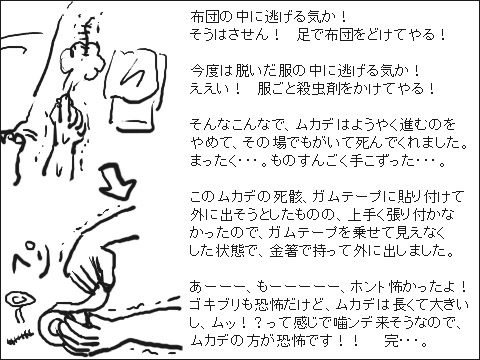 布団の中に逃げる気か！
そうはさせん！　足で布団をどけてやる！
今度は脱いだ服の中に逃げる気か！
ええい！　服ごと殺虫剤をかけてやる！
そんなこんなで、ムカデはようやく進むのを
やめて、その場でもがいて死んでくれました。
まったく･･･。ものすんごく手こずった･･･。
このムカデの死骸、ガムテープに貼り付けて
外に出そうとしたものの、上手く張り付かな
かったので、ガムテープを乗せて見えなく
した状態で、金箸で持って外に出しました。
あーーー、もーーーーー、ホント怖かったよ！
ゴキブリも恐怖だけど、ムカデは長くて大きい
し、ムッ！？って感じで噛ンデ来そうなので、
ムカデの方が恐怖です！！　完･･･。
ペリ